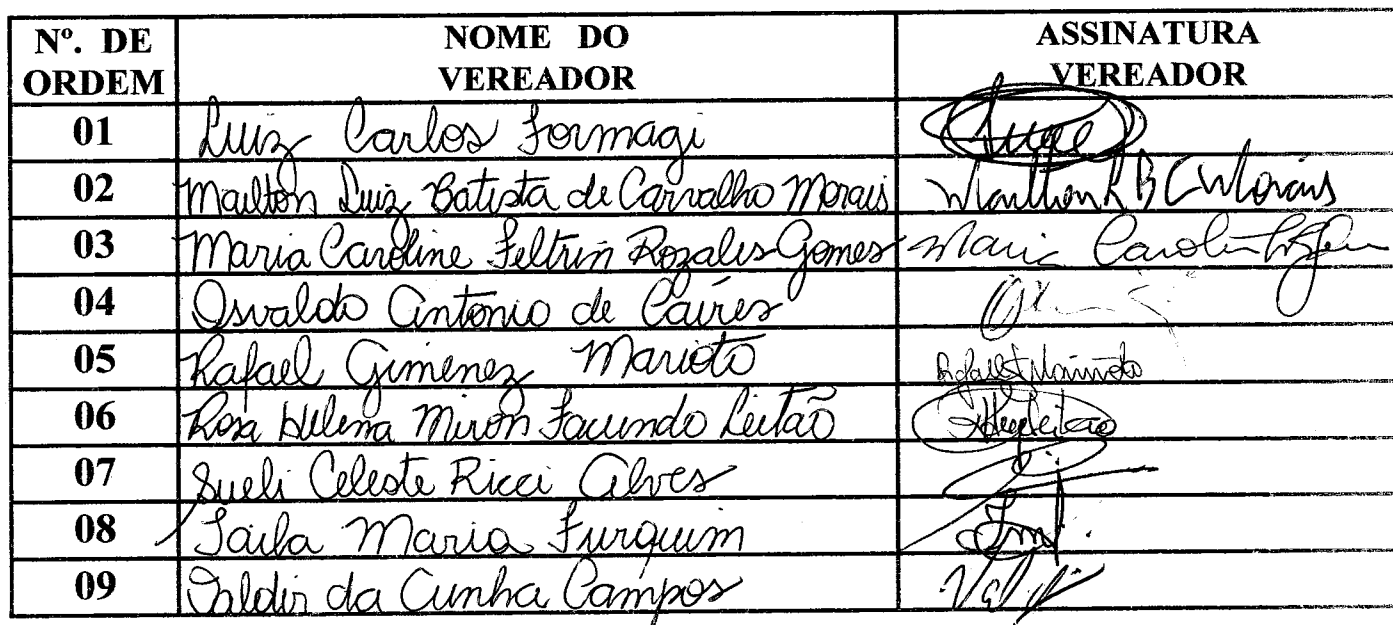 Nº. DE ORDEM NOME DO VEREADOR ASSINATURA VEREADOR
01 Luiz Carlos Formagi
02 Mailton Luiz Batista de Carvalho Morais Mailton L B C Morais
03 Maria Caroline Feltrin Rozales Gomes Maria
04 Osvaldo Antonio de Caires
05 Rafael Gimenez Marioto
06 Rosa Helena Miron Facundo Leitão
07 Sueli Celeste Ricci Alves
08 Maria Furquim
09 Valdir da Cunha Campos